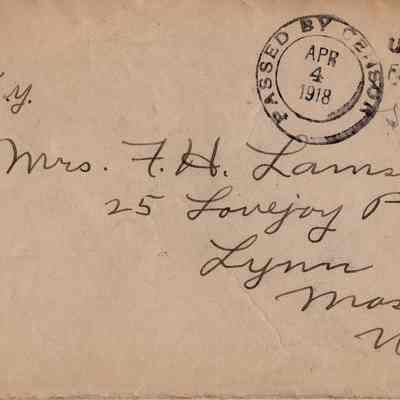 PASSED BY CENSOR
APR
4
1918
y.
Mrs. F. H. Lams
25 Lovejoy P
Lynn
Mas